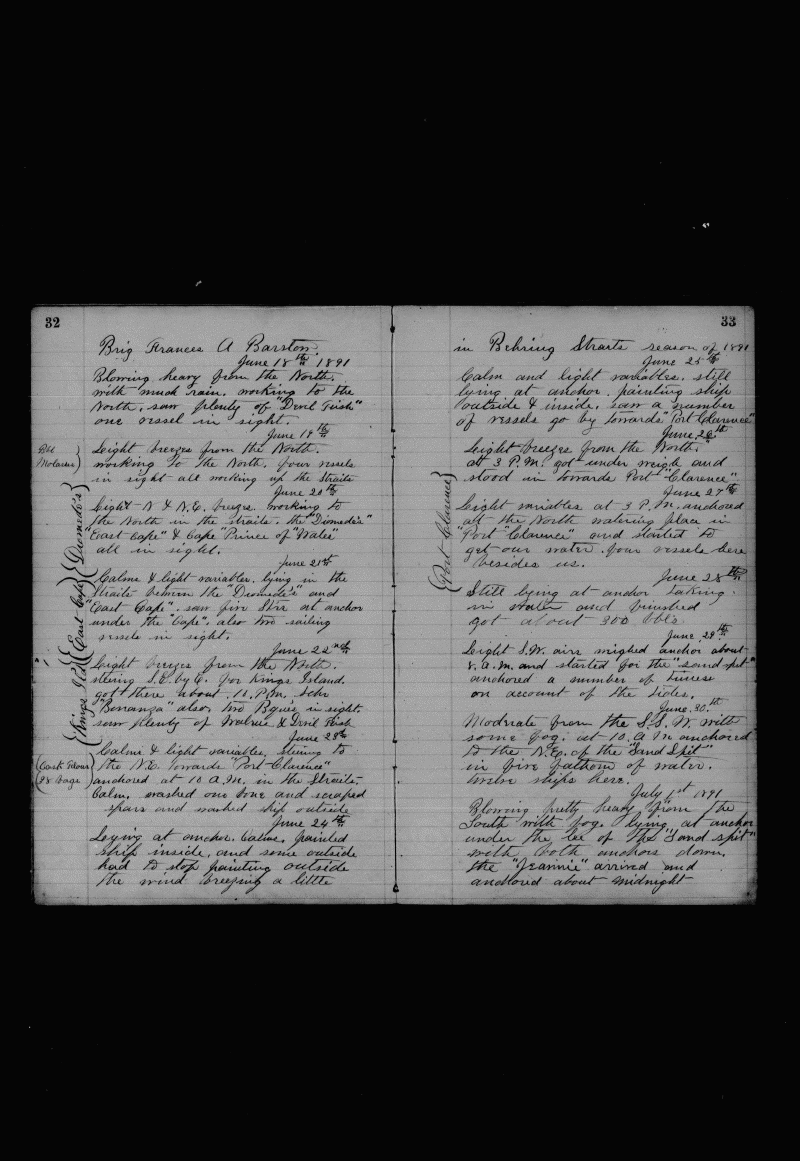 32
Brig Frances A Barstow.
June 18th 1891
Blowing heavy from the North.
with much rain. working to the
North. saw plenty of "Devil Fish"
one vessel in sight.
June 19th
Bbl
Molasses
Light breezes from the North.
working to the North. four vessels
in sight all working up the Straits
June 20th
Diomede's
Light N & N.E. breeze. working to
the North in the straits. the "Diomede's"
"East Cape" & Cape "Prince of Wales"
all in sight.
June 21st
East Cape
Calms & light variables, lying in the
straits between the "Diomede's" and
"East Cape". saw five Strs at anchor
under the "Cape". also two sailing
vessels in sight.
June 22nd
Kings I'd
Light breezes from the North.
steering S.E. by E. for Kings Island.
got there about 10. P.M. Schr
"Bonanza" also two Bques in sight.
saw plenty of Walrus & Devil Fish
June 23rd
Calms & light variables, steering to
Cask Flour
98 Bags
the N.E. towards "Port Clarence"
anchored at 10 A.M. in the Straits.
Calm. washed our bone and scraped
spars and washed ship outside
June 24th
Laying at anchor. Calms. painted
ship inside, and some outside
had to stop painting outside
the wind breezing a little
33
in Behring Straits season of 1891
June 25th
Calm and light variables. still
lying at anchor. painting ship
outside & inside. saw a number
of vessels go by towards "Port Clarence"
June 26th
Light breezes from the North.
at 3 P.M. got under weigh and
stood in towards Port "Clarence"
June 27th
Port Clarence
Light variables at 3 P.M. anchored
at the North watering place in
"Port "Clarence" and started to
get our water. four vessels here
besides us.
June 28th
Still lying at anchor taking
in water and finished
got about 300 bbls.
June 29th
Light S.W. airs weighed anchor about
8. A.M. and started for the "sand spit"
anchored a number of times
on account of the tides.
June 30th
Moderate from the S.S.W. with
some fog. at 10. A M anchored
to the N.E. of the "Sand Spit"
in five fathom of water.
twelve ships here.
July 1st 1891
Blowing pretty heavy from the
South with fog. lying at anchor
under the lee of the "Sand spit"
with both anchors down.
the "Jeannie" arrived and
anchored about midnight